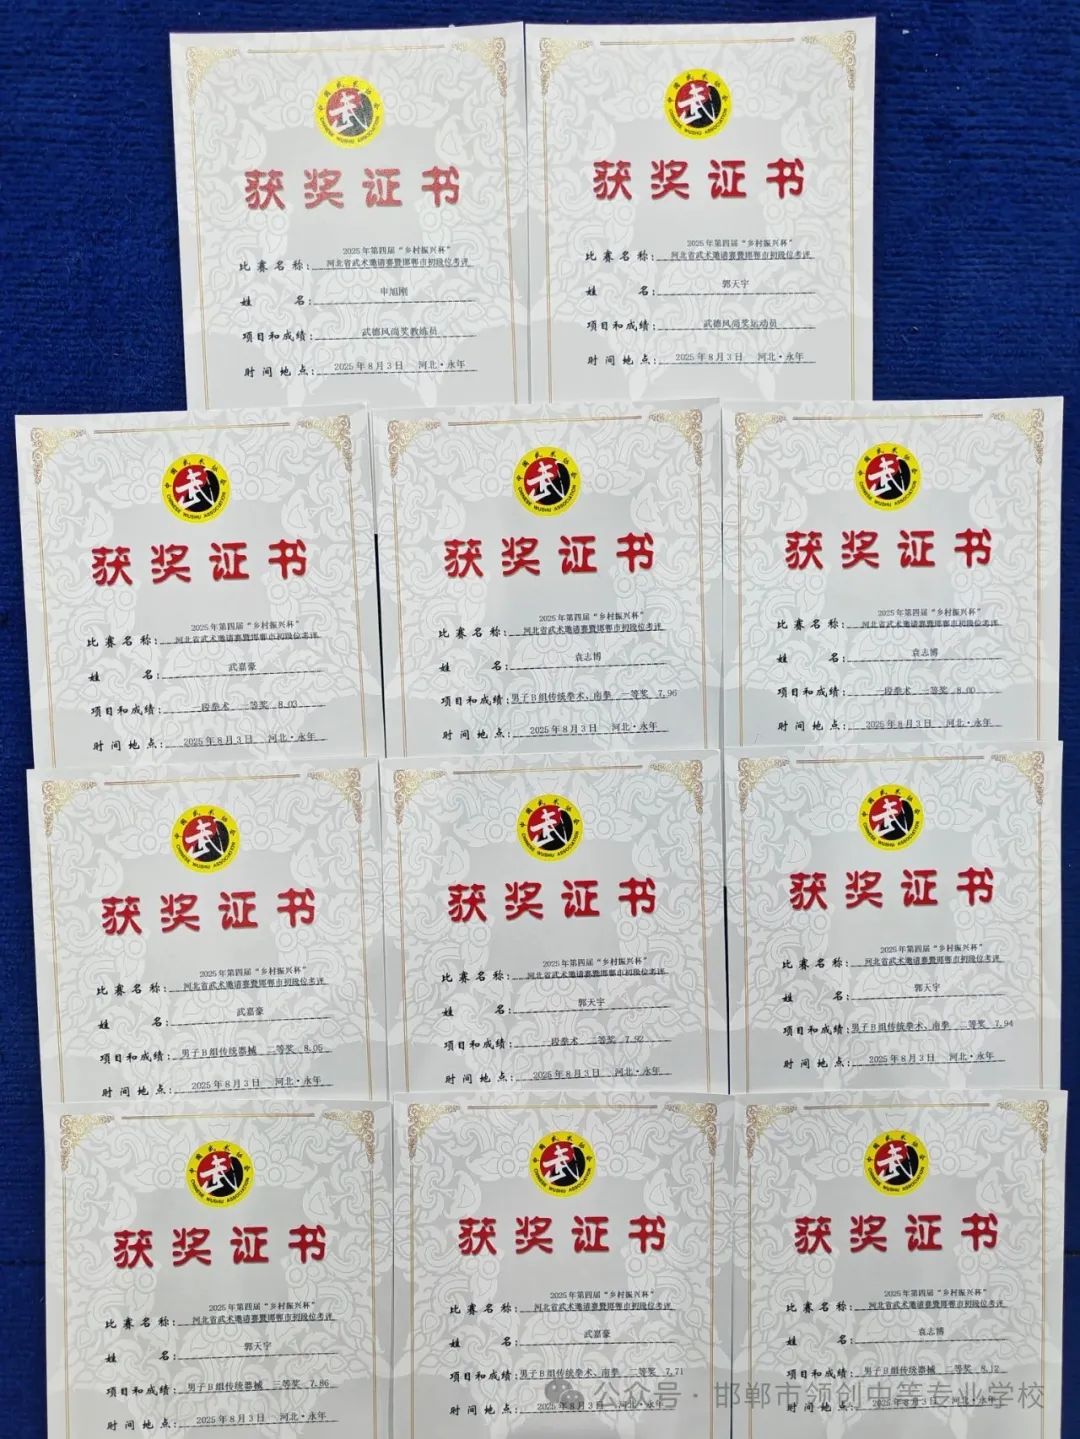 中国武术协会
CHINESE WUSHU ASSOCIATION
获奖证书
2025年第四届“乡村振兴杯”
比赛名称：河北省武术邀请赛暨邯郸市初段位考评
姓名：申旭刚
项目和成绩：武德风尚奖教练员
时间地点：2025年8月3日 河北·永年
中国武术协会
CHINESE WUSHU ASSOCIATION
获奖证书
2025年第四届“乡村振兴杯”
比赛名称：河北省武术邀请赛暨邯郸市初段位考评
姓名：郭天宇
项目和成绩：武德风尚奖运动员
时间地点：2025年8月3日 河北·永年
中国武术协会
CHINESE WUSHU ASSOCIATION
获奖证书
2025年第四届“乡村振兴杯”
比赛名称：河北省武术邀请赛暨邯郸市初段位考评
姓名：武嘉豪
项目和成绩：一段拳术 一等奖 8.03
时间地点：2025年8月3日 河北·永年
中国武术协会
CHINESE WUSHU ASSOCIATION
获奖证书
2025年第四届“乡村振兴杯”
比赛名称：河北省武术邀请赛暨邯郸市初段位考评
姓名：袁志博
项目和成绩：男子B组传统拳术、南拳 一等奖 7.96
时间地点：2025年8月3日 河北·永年
中国武术协会
CHINESE WUSHU ASSOCIATION
获奖证书
2025年第四届“乡村振兴杯”
比赛名称：河北省武术邀请赛暨邯郸市初段位考评
姓名：袁志博
项目和成绩：一段拳术 一等奖 8.00
时间地点：2025年8月3日 河北·永年
中国武术协会
CHINESE WUSHU ASSOCIATION
获奖证书
2025年第四届“乡村振兴杯”
比赛名称：河北省武术邀请赛暨邯郸市初段位考评
姓名：武嘉豪
项目和成绩：男子B组传统器械 二等奖 8.05
时间地点：2025年8月3日 河北·永年
中国武术协会
CHINESE WUSHU ASSOCIATION
获奖证书
2025年第四届“乡村振兴杯”
比赛名称：河北省武术邀请赛暨邯郸市初段位考评
姓名：郭天宇
项目和成绩：一段拳术 二等奖 7.92
时间地点：2025年8月3日 河北·永年
中国武术协会
CHINESE WUSHU ASSOCIATION
获奖证书
2025年第四届“乡村振兴杯”
比赛名称：河北省武术邀请赛暨邯郸市初段位考评
姓名：郭天宇
项目和成绩：男子B组传统拳术、南拳 二等奖 7.94
时间地点：2025年8月3日 河北·永年
中国武术协会
CHINESE WUSHU ASSOCIATION
获奖证书
2025年第四届“乡村振兴杯”
比赛名称：河北省武术邀请赛暨邯郸市初段位考评
姓名：郭天宇
项目和成绩：男子B组传统器械 三等奖 7.86
时间地点：2025年8月3日 河北·永年
中国武术协会
CHINESE WUSHU ASSOCIATION
获奖证书
2025年第四届“乡村振兴杯”
比赛名称：河北省武术邀请赛暨邯郸市初段位考评
姓名：武嘉豪
项目和成绩：男子B组传统拳术、南拳 二等奖 7.71
时间地点：2025年8月3日 河北·永年
中国武术协会
CHINESE WUSHU ASSOCIATION
获奖证书
2025年第四届“乡村振兴杯”
比赛名称：河北省武术邀请赛暨邯郸市初段位考评
姓名：袁志博
项目和成绩：男子B组传统器械 二等奖 8.12
时间地点：2025年8月3日 河北·永年
公众号·邯郸市领创中等专业学校